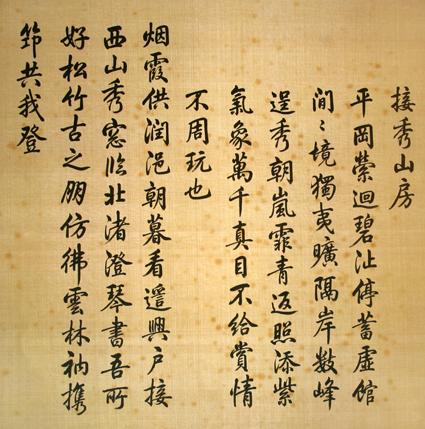 接秀山房
平岡縈迴碧沚停蓄虛館
閒〻境獨夷曠隔岸數峰
逞秀朝嵐霏青返照添紫
氣象萬千真目不給賞情
不周玩也
烟霞供潤浥朝暮看遙興戶接
西山秀窓臨北渚澄琴書吾所
好松竹古之朋仿彿雲林衲携
筇共我登